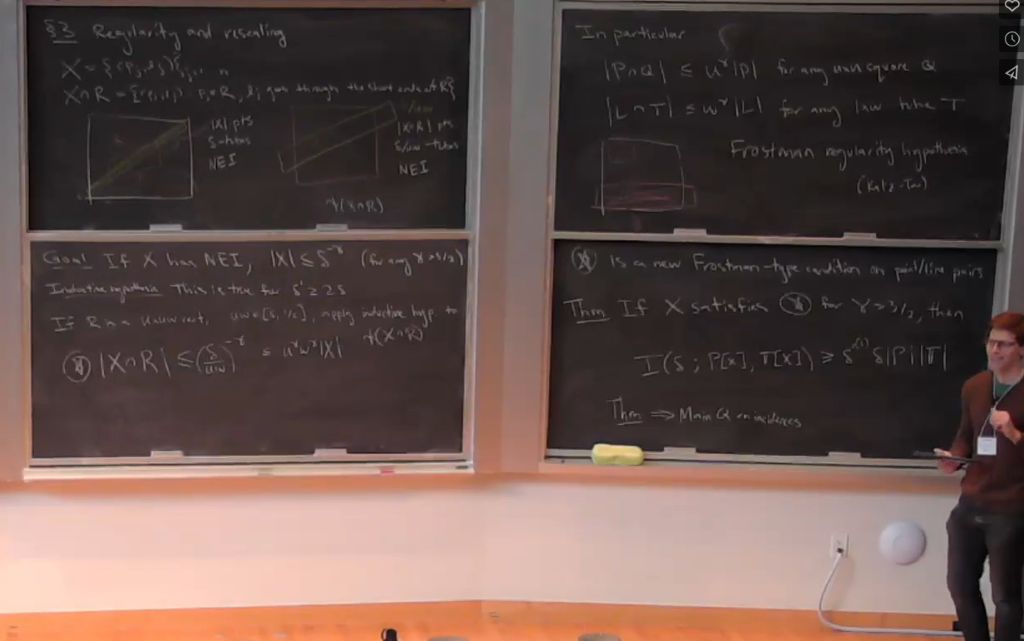 §3 Regularity and rescaling
X = {(p_j, l_j)}
X∩R = { p_j ∈ R, l_j goes through the short ends of R}
|X| pts
δ-tubes
NEI
|X∩R| pts
δ/uw-tubes
NEI
ψ(X∩R)
Goal If X has NEI, |X| ≲ δ^{-γ} (for any γ > 3/2)
Inductive hypothesis This is true for δ' ≥ 2δ
If R is a u×uw rect, uw ∈ [δ, 1/2], apply inductive hyp. to ψ(X∩R)
(*) |X∩R| ≤ (δ/uw)^{-γ} ≤ u^γ w^γ |X|
In particular
|P∩Q| ≤ u^γ |P| for any u×u square Q
|L∩T| ≤ w^γ |L| for any 1×w tube T
Frostman regularity hypothesis
(Katz-Tao)
(*) Is a new Frostman-type condition on point/line pairs
Thm If X satisfies (*) for γ > 3/2, then
I(δ; P[X], T[X]) ≳ δ^{o(1)} δ|P||T|
Thm ⟹ Main Q on incidences